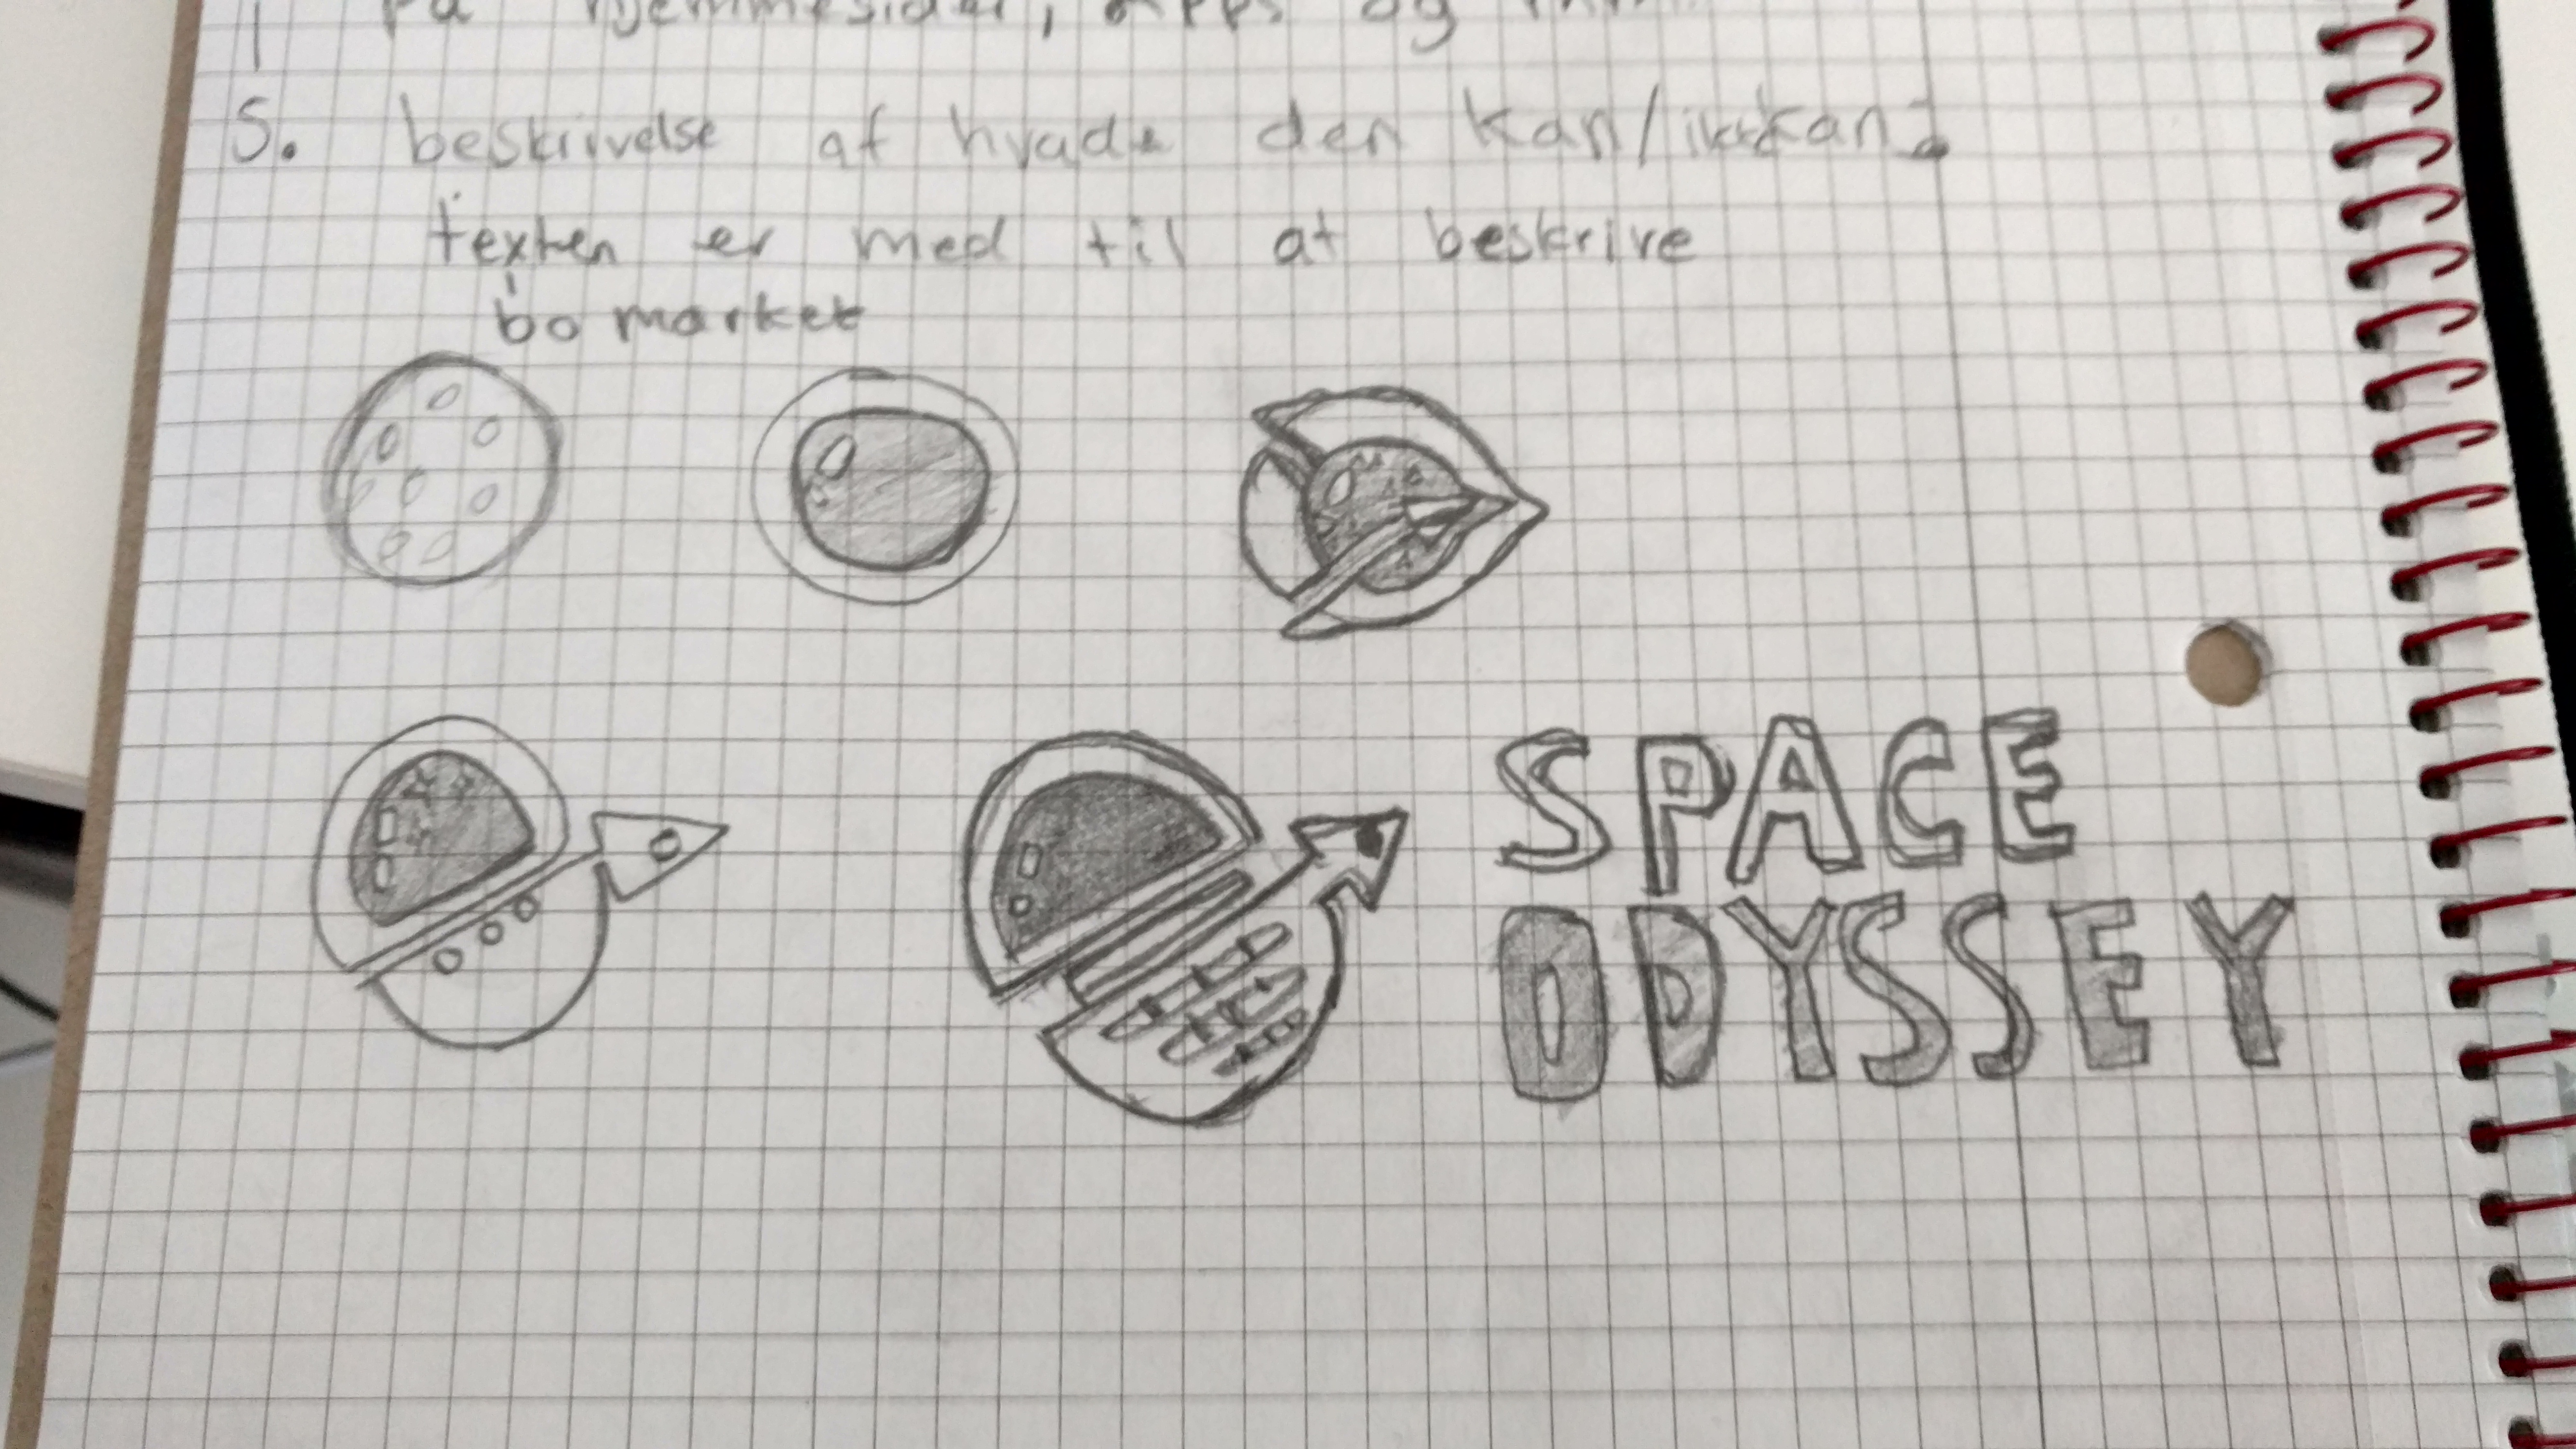 på hjemmesider, Apps og
5. beskrivelse af hvade den kan/ikkekan:
texten er med til at beskrive
bomærket
SPACE
ODYSSEY